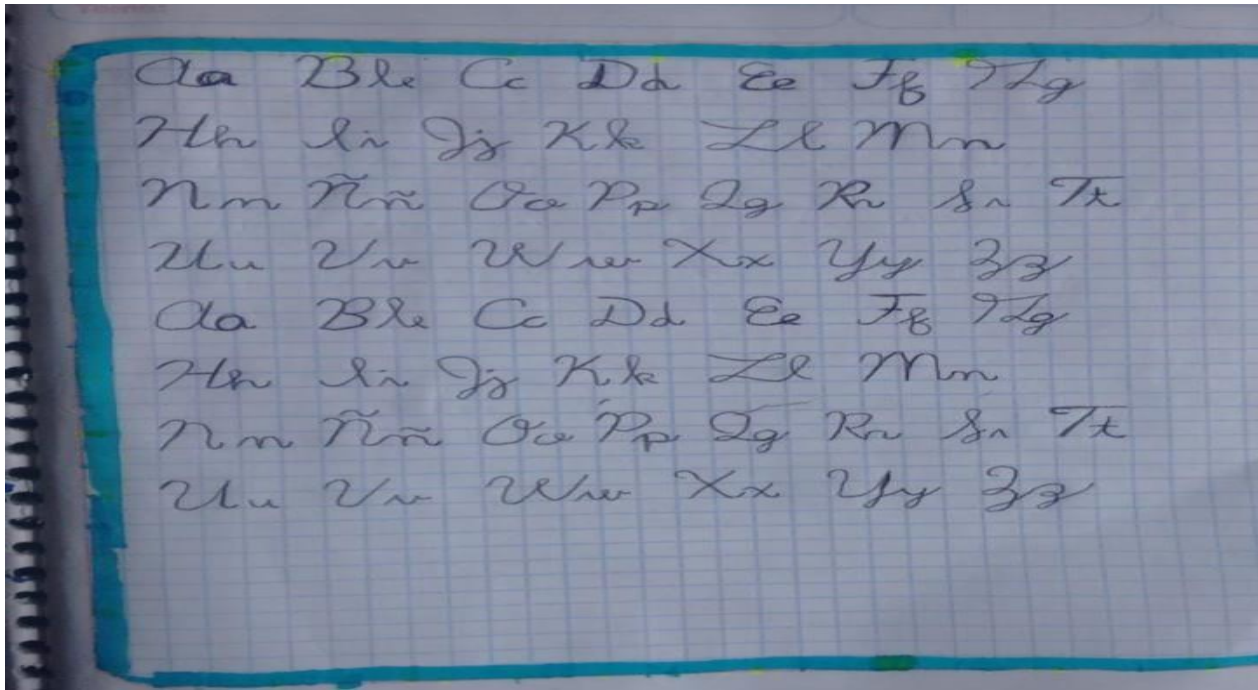 Aa Bb Cc Dd Ee Ff Gg
Hh Ii Jj Kk Ll Mm
Nn Ññ Oo Pp Qq Rr Ss Tt
Uu Vv Ww Xx Yy Zz
Aa Bb Cc Dd Ee Ff Gg
Hh Ii Jj Kk Ll Mm
Nn Ññ Oo Pp Qq Rr Ss Tt
Uu Vv Ww Xx Yy Zz